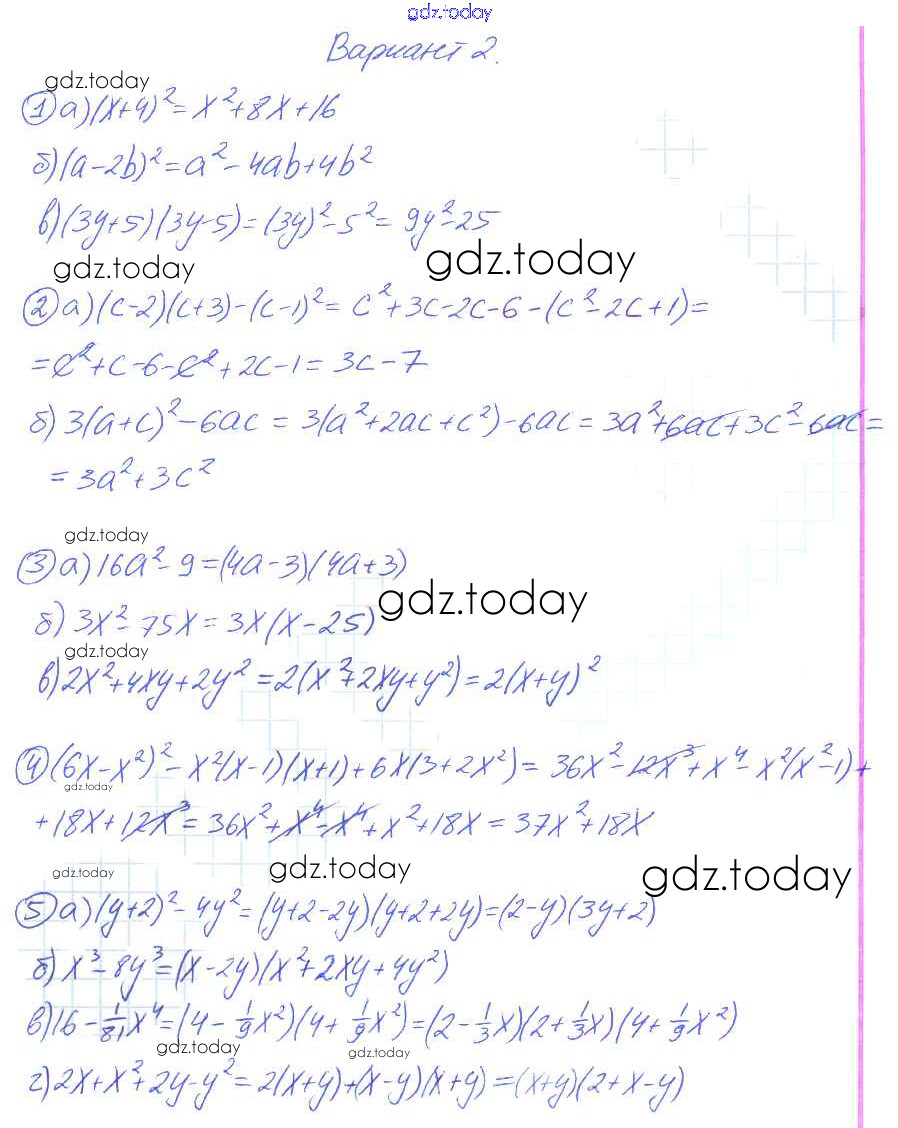 gdz.today
Вариант 2.
gdz.today
① а) (x+4)² = x²+8x+16
б) (a-2b)² = a²-4ab+4b²
в) (3y+5)(3y-5) = (3y)²-5² = 9y²-25
gdz.today
gdz.today
② а) (c-2)(c+3)-(c-1)² = c²+3c-2c-6-(c²-2c+1) =
= c²+c-6-c²+2c-1 = 3c-7
б) 3(a+c)²-6ac = 3(a²+2ac+c²)-6ac = 3a²+6ac+3c²-6ac =
= 3a²+3c²
gdz.today
③ а) 16a²-9 = (4a-3)(4a+3)
gdz.today
б) 3x²-75x = 3x(x-25)
gdz.today
в) 2x²+4xy+2y² = 2(x²+2xy+y²) = 2(x+y)²
④ (6x-x²)²-x²(x-1)(x+1)+6x(3+2x²) = 36x²-12x³+x⁴-x²(x²-1)+
gdz.today
+18x+12x³ = 36x²+x⁴-x⁴+x²+18x = 37x²+18x
gdz.today
gdz.today
gdz.today
⑤ а) (y+2)²-4y² = (y+2-2y)(y+2+2y) = (2-y)(3y+2)
б) x³-8y³ = (x-2y)(x²+2xy+4y²)
в) 16-1/81x⁴ = (4-1/9x²)(4+1/9x²) = (2-1/3x)(2+1/3x)(4+1/9x²)
gdz.today
gdz.today
г) 2x+x²+2y-y² = 2(x+y)+(x-y)(x+y) = (x+y)(2+x-y)